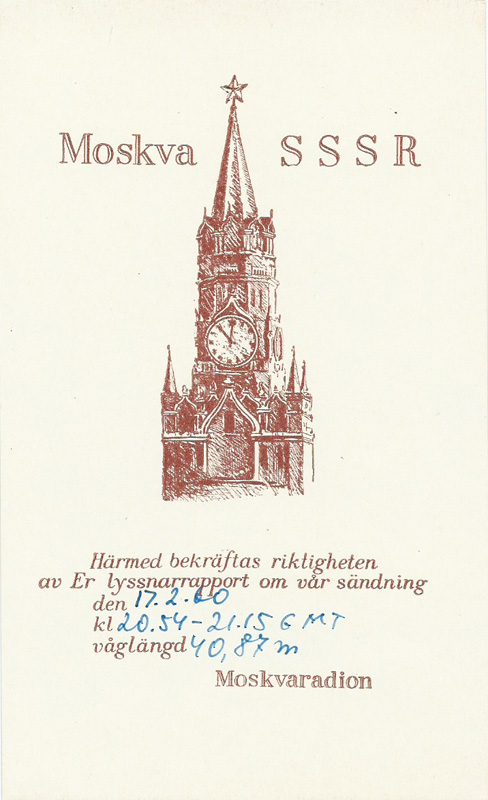 Moskva SSSR
Härmed bekräftas riktigheten
av Er lyssnarrapport om vår sändning
den 17.2.60
kl 20.54-21.15 GMT
våglängd 40,87 m
Moskvaradion